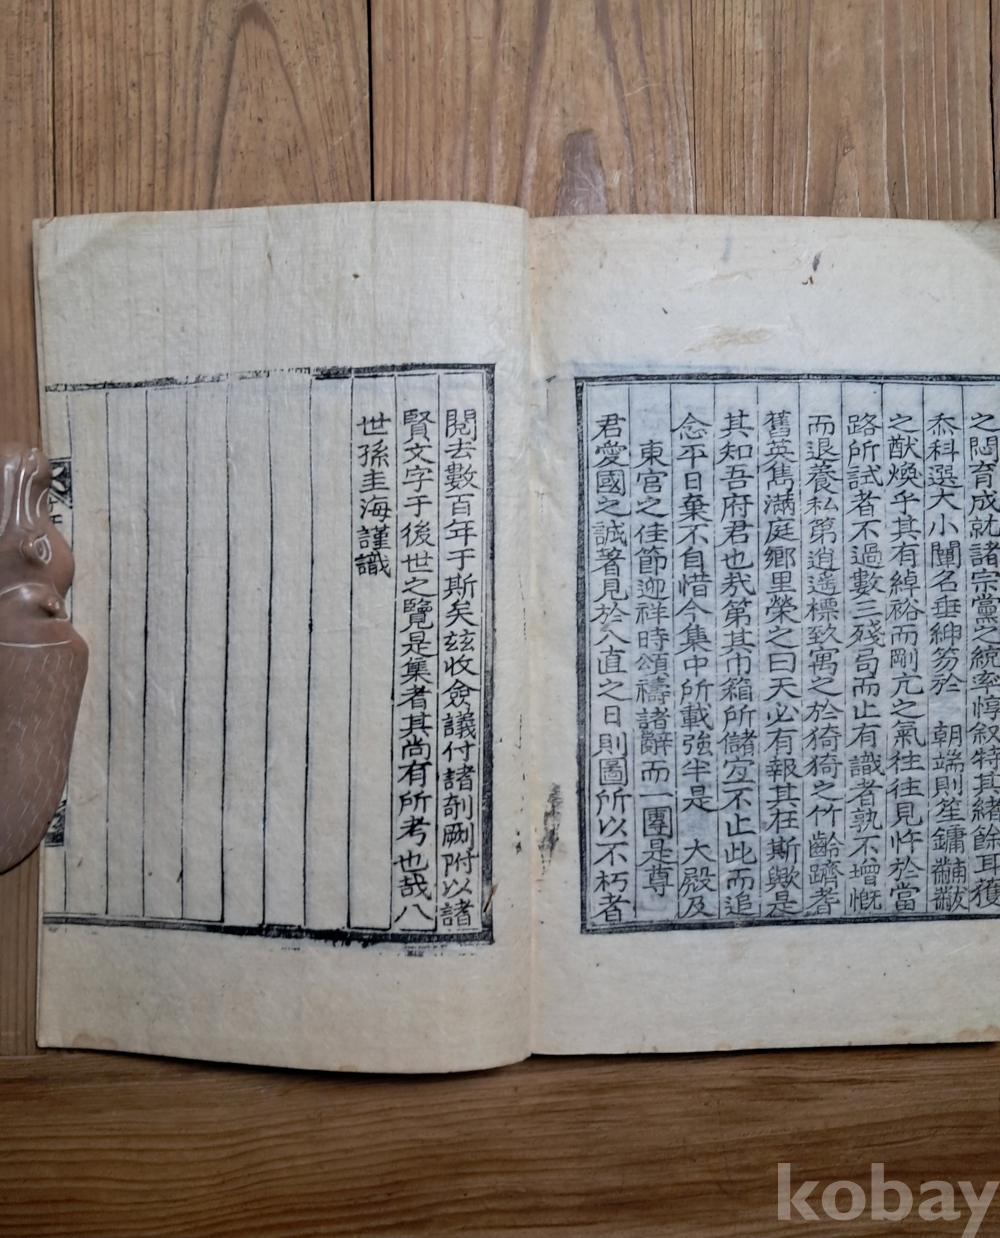 之閎育成就諸宗黨之統率惇叙特其緒餘耳獲
忝科選大小闈名垂紳笏於 朝端則笙鏞黼黻
之猷煥乎其有綽裕而剛亢之氣往往見忤於當
路所試者不過數三殘局而止有識者孰不增慨
而退養私第逍遙標致寓之於猗猗之竹齡躋耆
舊英雋滿庭鄉里榮之曰天必有報其在斯歟是
其知吾府君也哉第其巾箱所儲宜不止此而追
念平日棄不自惜今集中所載強半是 大殿及
東官之佳節迎祥時頌禱諸辭而一團是尊
君愛國之誠著見於入直之日則圖所以不朽者
閱去數百年于斯矣玆收僉議付諸剞劂附以諸
賢文字于後世之覽是集者其尚有所考也哉八
世孫圭海謹識
kobay